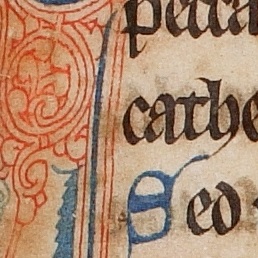 pecca
cathe
Sed